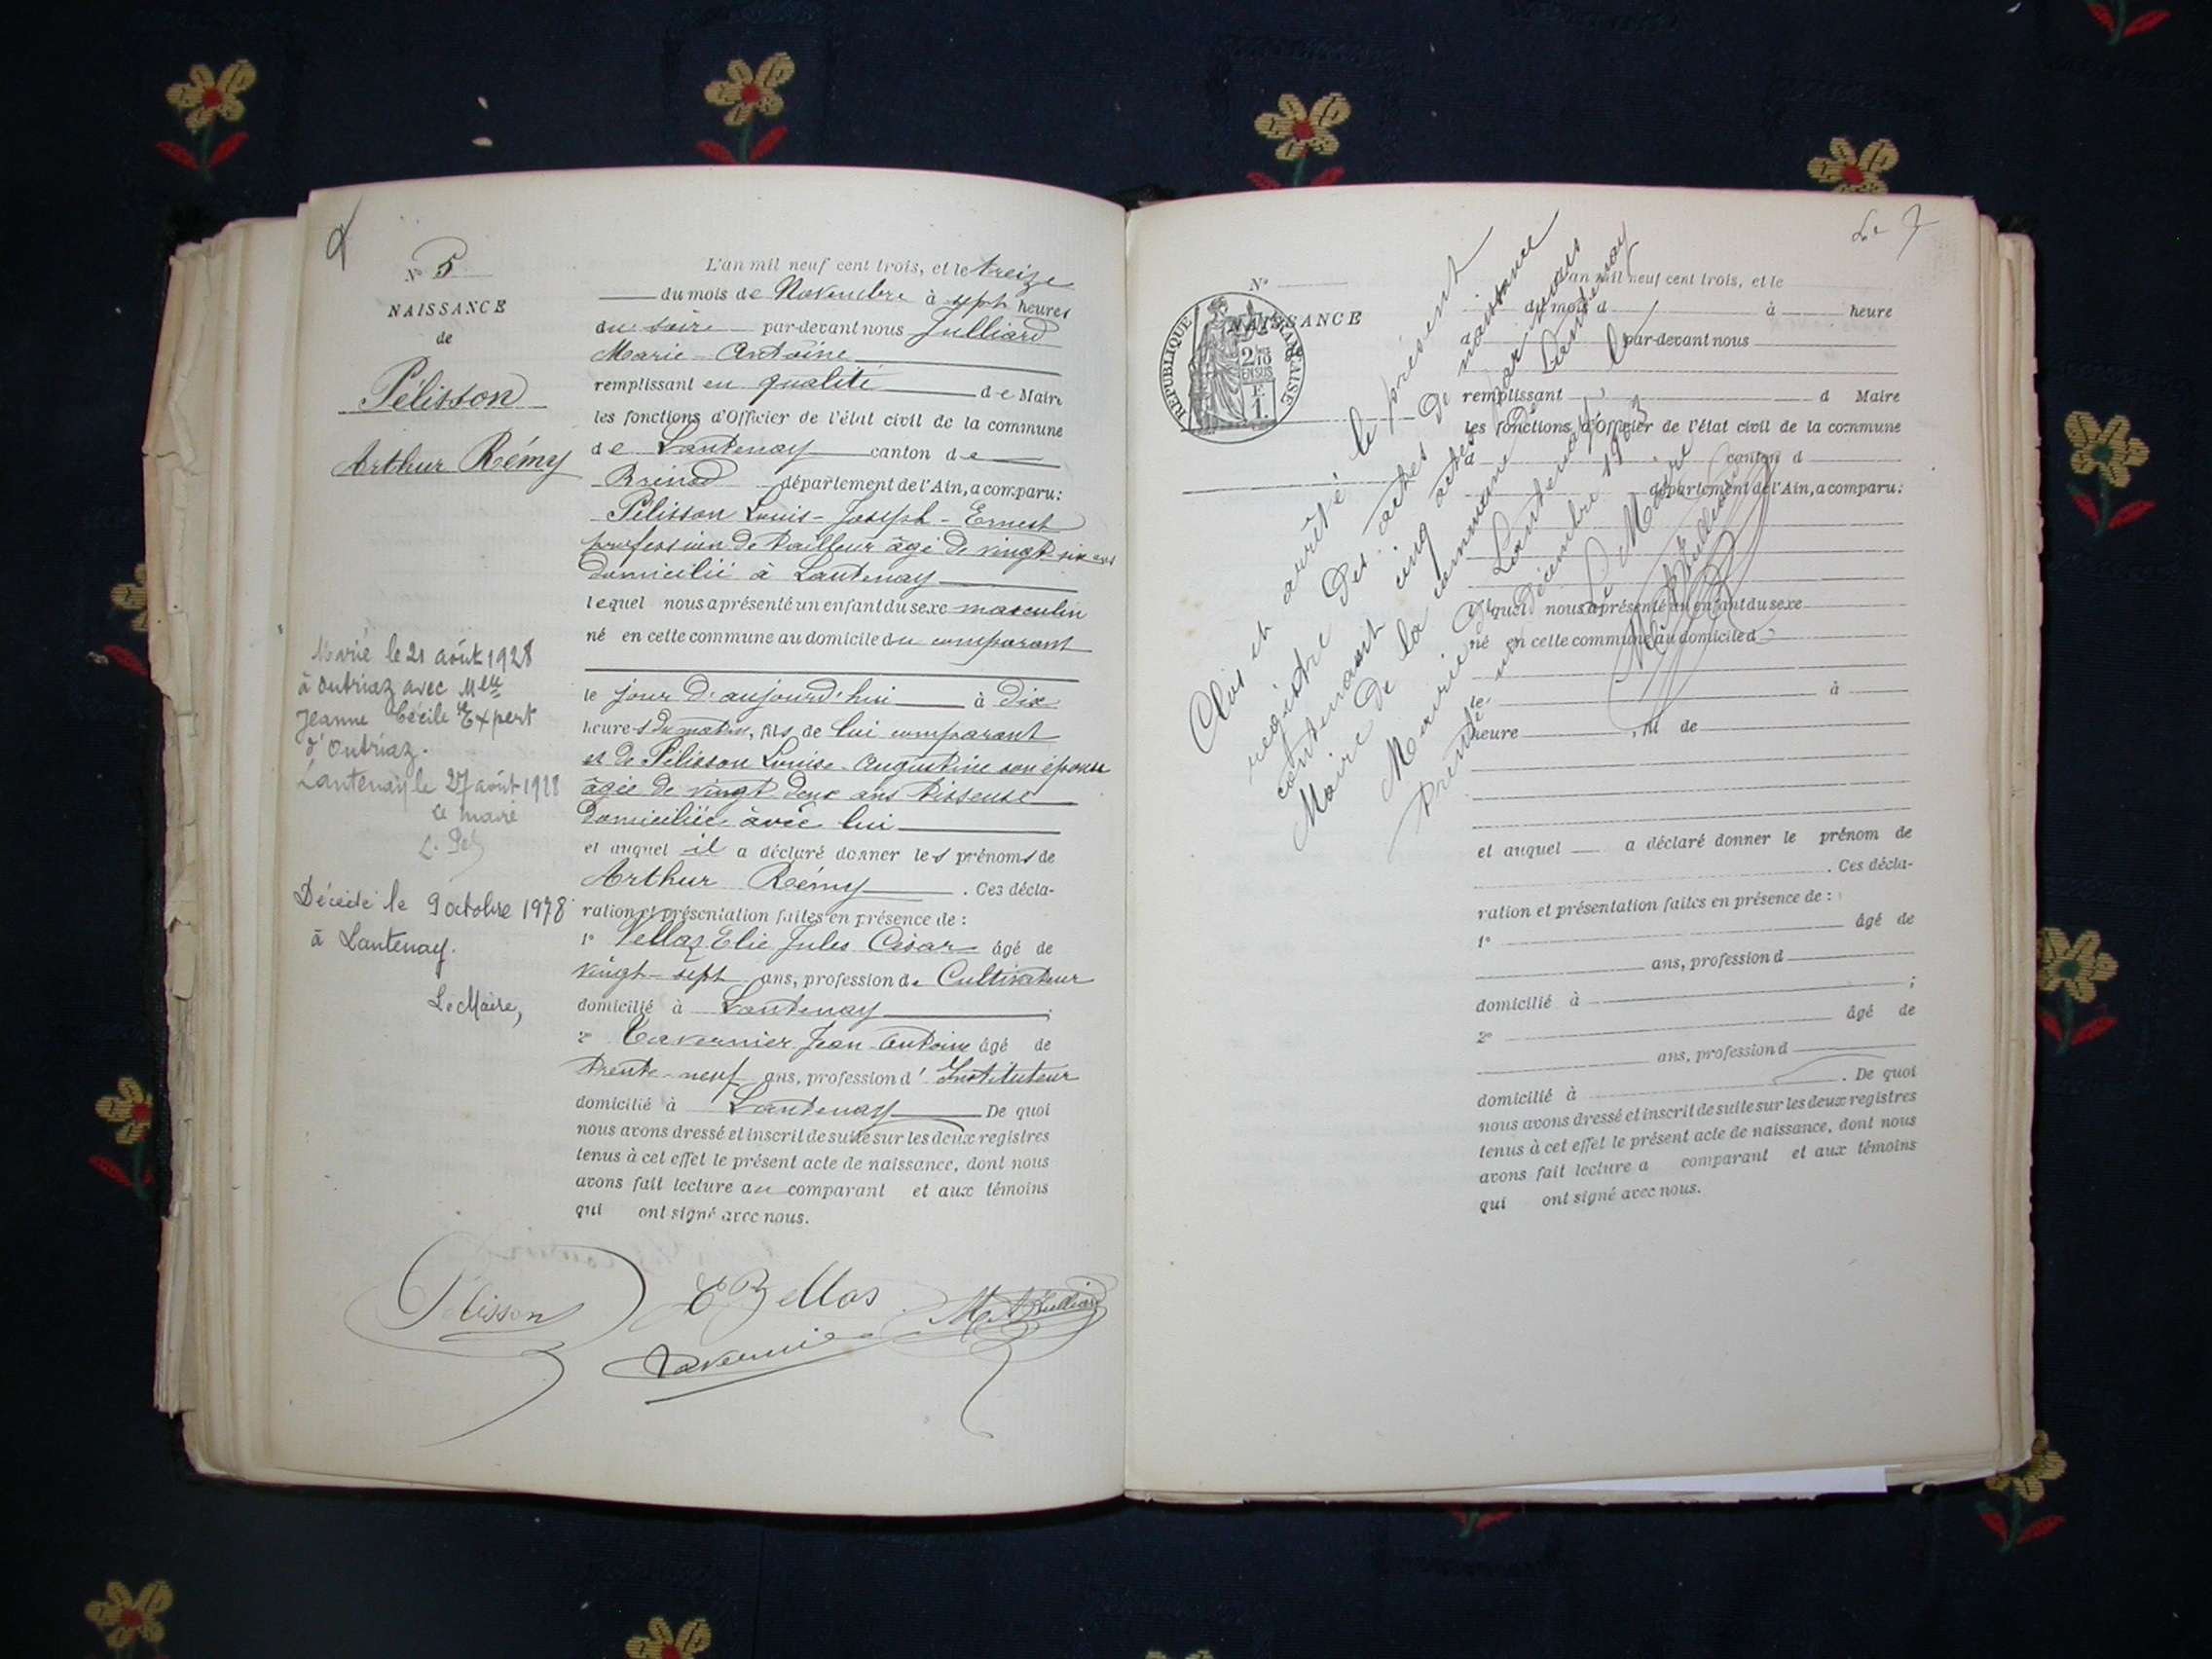 N° 5
NAISSANCE
de
Pélisson
Arthur Rémy
Marié le 21 août 1928
à Outriaz avec Mlle
Jeanne Cécile Expert
d'Outriaz.
Lantenay le 27 août 1928
Le maire
Décédé le 9 octobre 1978
à Lantenay.
Le Maire,
L'an mil neuf cent trois, et le treize
du mois de Novembre à sept heures
du soir par-devant nous Julliard
Marie-Antoine
remplissant en qualité de Maire
les fonctions d'Officier de l'état civil de la commune
de Lantenay canton de
Brénod département de l'Ain, a comparu:
Pélisson Louis-Joseph-Ernest
profession de tailleur âgé de vingt six ans
domicilié à Lantenay
lequel nous a présenté un enfant du sexe masculin
né en cette commune au domicile du comparant
le jour d'aujourd'hui à dix
heures du matin, fils de lui comparant
et de Pélisson Louise Augustine son épouse
âgée de vingt-deux ans tisseuse
domiciliée avec lui
et auquel il a déclaré donner les prénoms de
Arthur Rémy. Ces décla-
ration et présentation faites en présence de:
1° Vellaz Elie Jules César âgé de
vingt-sept ans, profession de Cultivateur
domicilié à Lantenay;
2° Tavernier Jean-Antoine âgé de
trente-neuf ans, profession d'Instituteur
domicilié à Lantenay De quoi
nous avons dressé et inscrit de suite sur les deux registres
tenus à cet effet le présent acte de naissance, dont nous
avons fait lecture au comparant et aux témoins
qui ont signé avec nous.
Pélisson
Tavernier
M A Julliard
N°
NAISSANCE
RÉPUBLIQUE FRANÇAISE
2/10
EN SUS
F
1.
Clos et arrêté le présent
registre des actes de naissance
contenant cinq actes par nous
Maire de la commune de Lantenay
Mairie de Lantenay, le
trente un Décembre 1903
Le Maire
M A Julliard
L'an mil neuf cent trois, et le
du mois d à heure
d par-devant nous
remplissant d Maire
les fonctions d'Officier de l'état civil de la commune
d canton d
département de l'Ain, a comparu:
lequel nous a présenté un enfant du sexe
né en cette commune au domicile d
le à
heure, fil de
et auquel a déclaré donner le prénom de
. Ces décla-
ration et présentation faites en présence de:
1° âgé de
ans, profession d
domicilié à ;
2° âgé de
ans, profession d
domicilié à . De quoi
nous avons dressé et inscrit de suite sur les deux registres
tenus à cet effet le présent acte de naissance, dont nous
avons fait lecture a comparant et aux témoins
qui ont signé avec nous.